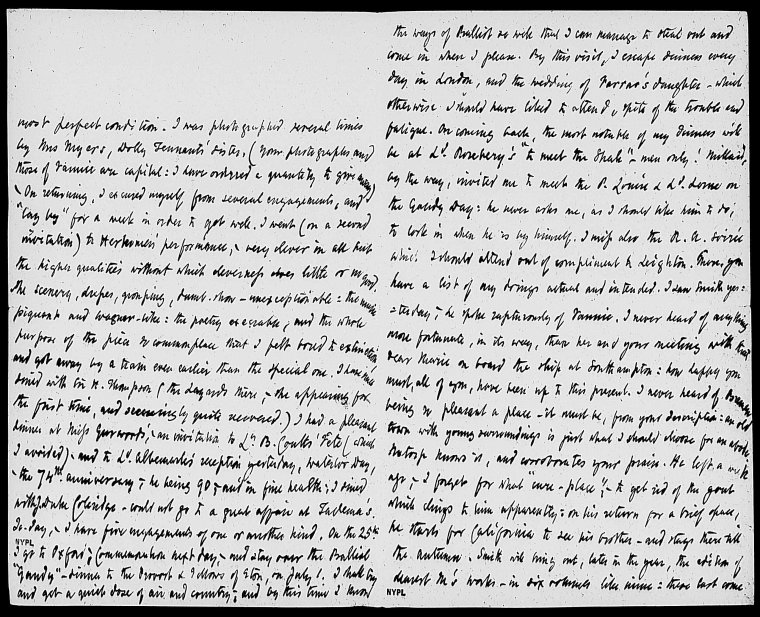 most perfect condition. I was photographed several times
by Mrs Myers, Dolly Tennants' sister. (Your photographs and
those of Pannie are capital: I have ordered a quantity to give away)
On returning, I excused myself from several engagements, and
"lay by" for a week in order to get well. I went (on a second
invitation) to Herkomer's performance, very clever in all but
the higher qualities without which cleverness does little or no good.
The scenery, dresses, grouping, dumb-show – unexceptionable: the music
piquant and wagner-like: the poetry execrable, and the whole
purpose of the piece so commonplace that I felt bored to extinction
and got away by a train even earlier than the special one. I have
dined with Sir H. Thompson (the Layards there, – she appearing for
the first time, and seemingly quite recovered.) I had a pleasant
dinner at Miss Gurwood's, – an invitation to Ly. B. Coutts' Fête (which
I avoided) – and to Ld. Albemarle's reception yesterday, Waterloo Day,
– the 74th anniversary – he being 90 – and in fine health: I dined
with Judge Coleridge – could not go to a great affair at Tadema's.
To-day, – I have five engagements of one or another kind. On the 25th
NYPL
I go to Oxford, Commemoration next day, – and stay over the Balliol
"Gaudy" – dinner to the Provost & Fellows of Eton, on July 1. I shall try
and get a quiet dose of air and country, – and by this time I know
the ways of Balliol so well that I can manage to steal out and
come in when I please. By this visit, I escape dinners every
day in London, and the wedding of Farrar's daughter – which
otherwise I should have liked to attend, spite of the trouble and
fatigue. On coming back, the most notable of my dinners will
be at Ld. Rosebery's "to meet the Shah" – men only! Millais,
by the way, invited me to meet the P. Louise & Ld. Lorne on
the Gaudy Day: he never asks me, as I should like him to do,
to look in when he is by himself. I miss also the R. A. Soirée
which I should attend out of compliment to Leighton. There, you
have a list of my doings actual and intended. I saw Smith yes=
=terday, – he spoke rapturously of Pannie. I never heard of anything
more fortunate, in its way, than her and your meeting with
dear Marie on board the ship at Southampton: how happy you
must, all of you, have been up to this present. I never heard of
being so pleasant a place – it must be, from your description: an old
town with young surroundings is just what I should choose for an abode.
Natorp knows it, and corroborates your praise. He left a week
ago, – I forget for what "cure-place", – to get rid of the gout
which clings to him apparently: on his return for a brief space,
he starts for California to see his brother – and stays there till
the autumn. Smith will bring out, later in the year, the edition of
dearest M's works – in six volumes like mine: these last come
NYPL